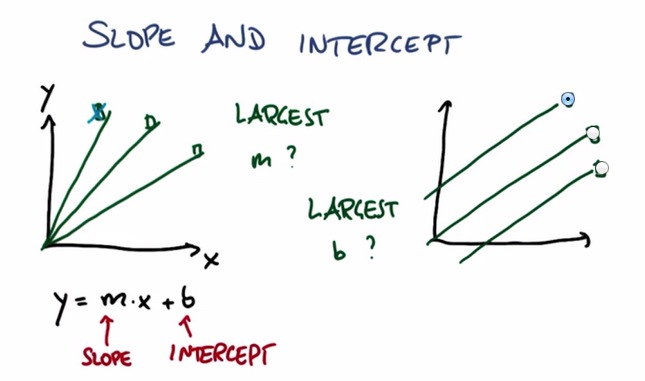 SLOPE AND INTERCEPT
Y
LARGEST
m ?
X
LARGEST
b ?
y = m·x + b
SLOPE INTERCEPT